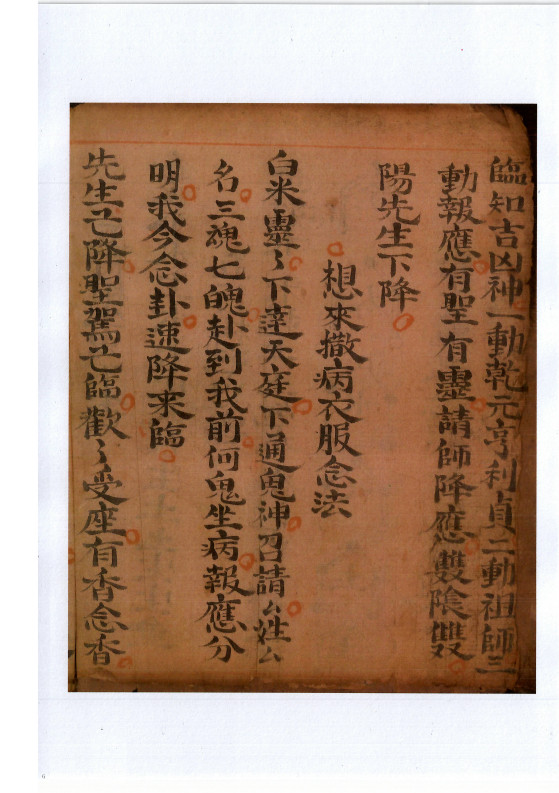 臨知吉凶神一動乾元亨利貞二動祖師三
動報應有聖有靈請師降應雙陰雙
陽先生下降
想來撒病衣服念法
白米靈〻下達天庭下通鬼神召請厶姓厶
名三魂七魄赴到我前何鬼坐病報應分
明我今念卦速降来臨
先生㔾降聖駕㔾臨歡〻受座有香念香